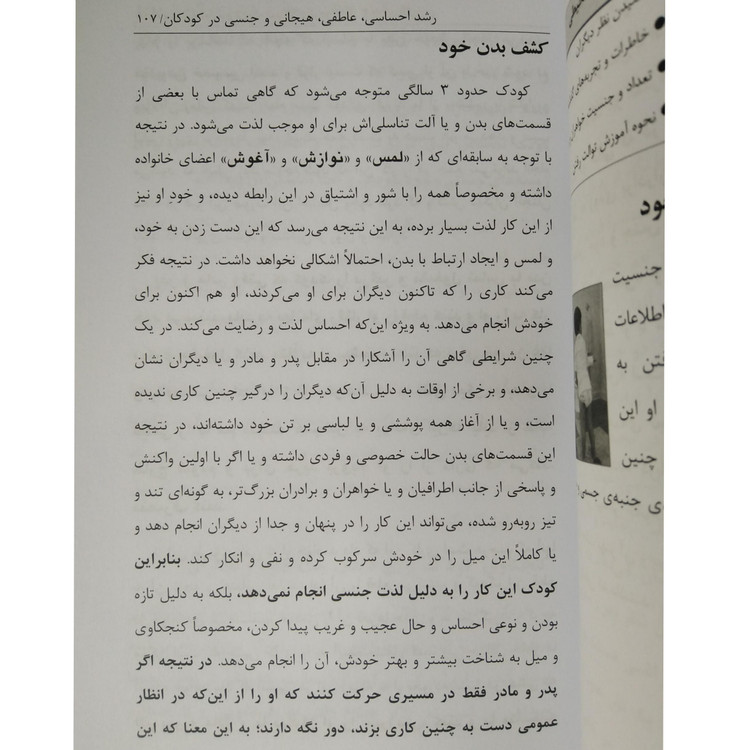 رشد احساسی، عاطفی، هیجانی و جنسی در کودکان/ ۱۰۷
کشف بدن خود
کودک حدود ۳ سالگی متوجه می‌شود که گاهی تماس با بعضی از
قسمت‌های بدن و یا آلت تناسلی‌اش برای او موجب لذت می‌شود. در نتیجه
با توجه به سابقه‌ای که از «لمس» و «نوازش» و «آغوش» اعضای خانواده
داشته و مخصوصاً همه را با شور و اشتیاق در این رابطه دیده، و خودِ او نیز
از این کار لذت بسیار برده، به این نتیجه می‌رسد که این دست زدن به خود،
و لمس و ایجاد ارتباط با بدن، احتمالاً اشکالی نخواهد داشت. در نتیجه فکر
می‌کند کاری را که تاکنون دیگران برای او می‌کردند، او هم اکنون برای
خودش انجام می‌دهد. به ویژه این‌که احساس لذت و رضایت می‌کند. در یک
چنین شرایطی گاهی آن را آشکارا در مقابل پدر و مادر و یا دیگران نشان
می‌دهد، و برخی از اوقات به دلیل آن‌که دیگران را درگیر چنین کاری ندیده
است، و یا از آغاز همه پوششی و یا لباسی بر تن خود داشته‌اند، در نتیجه
این قسمت‌های بدن حالت خصوصی و فردی داشته و یا اگر با اولین واکنش
و پاسخی از جانب اطرافیان و یا خواهران و برادران بزرگ‌تر، به گونه‌ای تند و
تیز روبه‌رو شده، می‌تواند این کار را در پنهان و جدا از دیگران انجام دهد و
یا کاملاً این میل را در خودش سرکوب کرده و نفی و انکار کند. بنابراین
کودک این کار را به دلیل لذت جنسی انجام نمی‌دهد، بلکه به دلیل تازه
بودن و نوعی احساس و حال عجیب و غریب پیدا کردن، مخصوصاً کنجکاوی
و میل به شناخت بیشتر و بهتر خودش، آن را انجام می‌دهد. در نتیجه اگر
پدر و مادر فقط در مسیری حرکت کنند که او را از این‌که در انظار
عمومی دست به چنین کاری بزند، دور نگه دارند؛ به این معنا که این
نظر دیگران
خاطرات و تجربه‌های
تعداد و جنسیت
نحوه آموزش توالت
جنسیت
اطلاعات
به
او این
چنین
ی جنبه‌ی